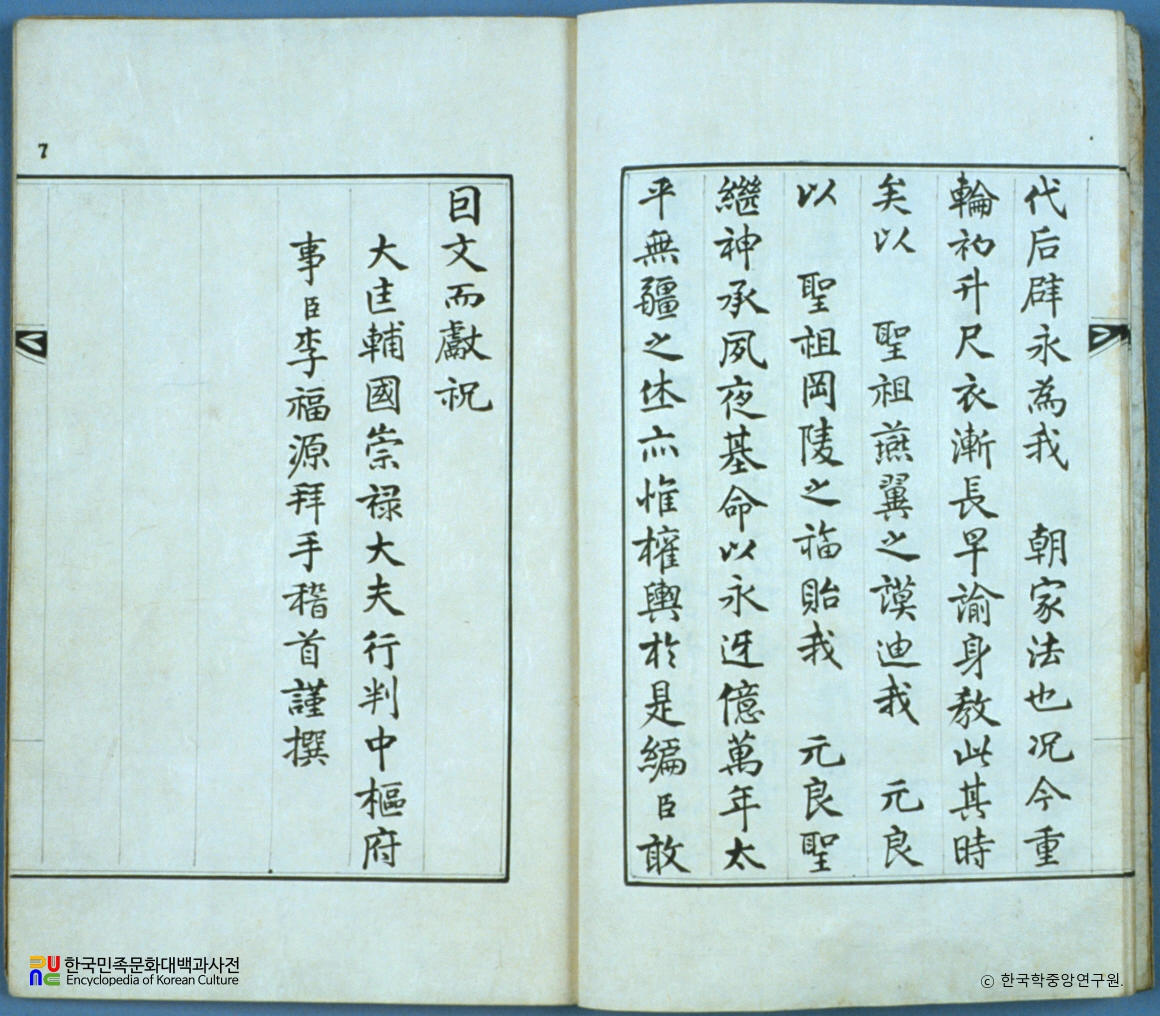 代后辟永為我 朝家法也况今重
輪初升尺衣漸長早諭身教此其時
矣以 聖祖燕翼之謨迪我 元良
以 聖祖岡陵之福貽我 元良聖
繼神承夙夜基命以永迓億萬年太
平無疆之休亦惟權輿於是編臣敢
因文而獻祝
大匡輔國崇禄大夫行判中樞府
事臣李福源拜手稽首謹撰
7
한국민족문화대백과사전
Encyclopedia of Korean Culture
ⓒ 한국학중앙연구원.